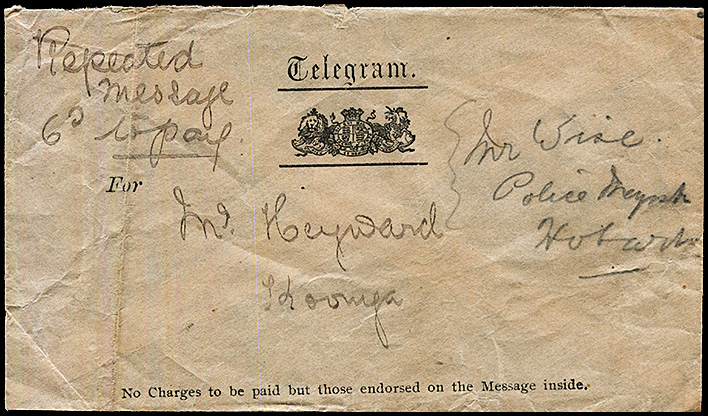 Repeated
message
6D to pay.
Telegram.
For
Mr. Heyward
Mr Wise.
Police
Hobart
No Charges to be paid but those endorsed on the Message inside.